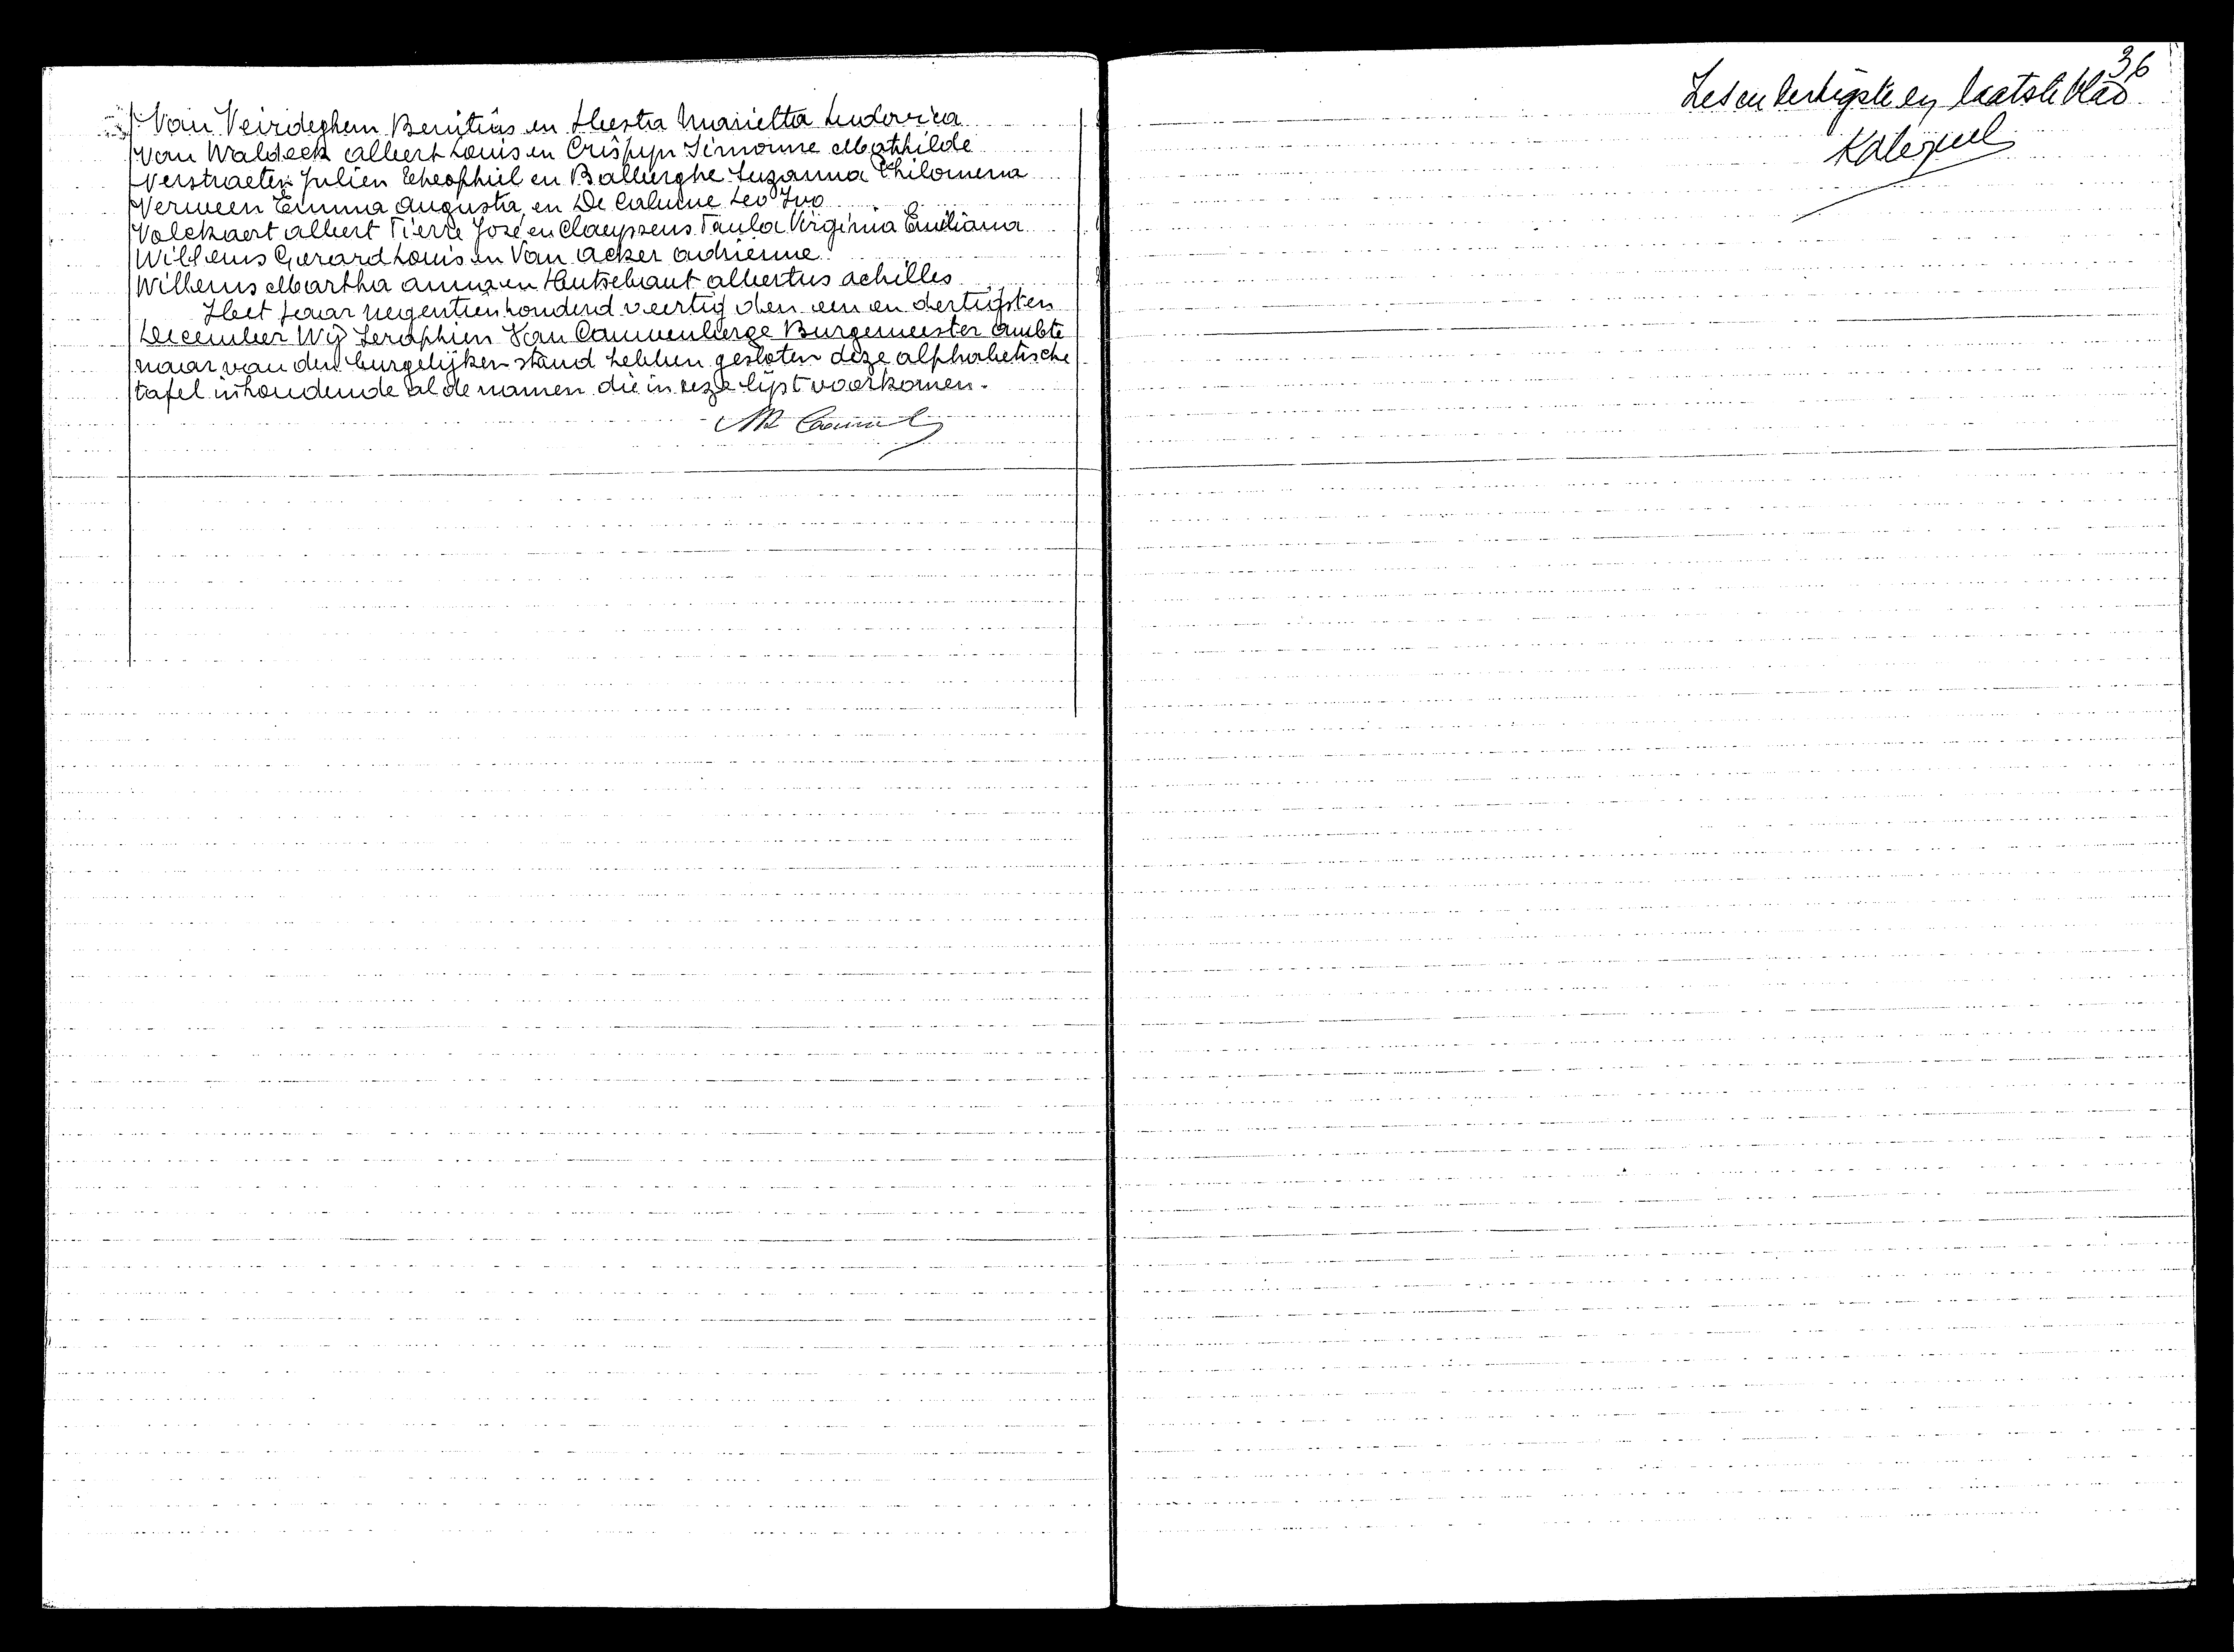 Van Veirdeghem Benitius en Heesta Marietta Ludovica
Van Waldeck Albert Louis en Crispyn Simonne Mathilde
Verstraeten Julien Theophiel en Balleryhe Suzanna Philomena
Vermeen Emma Augusta en De Caluwe Leo Ivo
Volckaert Albert Pierre José en Claeyssens Paula Virginia Emiliana
Willems Gerard Louis en Van Acker Adrienne
Willems Martha Anna en Hutsebaut Albertus Achilles
Het jaar negentienhonderd veertig den een en dertigsten
December Wij Seraphien Van Cauwenberge Burgemeester Ambte
naar van den burgelijken stand hebben gesloten deze alphabetische
tafel inhoudende al de namen die in deze lijst voorkomen.
36
Zes en dertigste en laatste blad